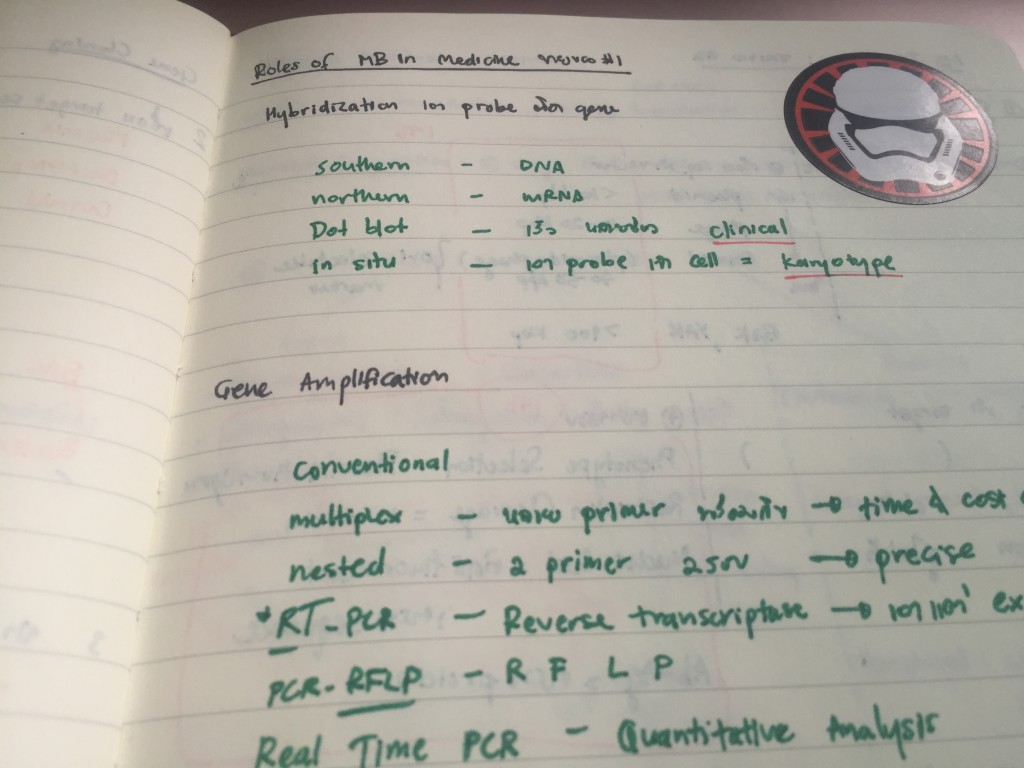 Roles of MB in Medicine #1
Hybridization เอา probe gene
southern - DNA
northern - mRNA
Dot blot - เร็ว clinical
in situ - เอา probe ใน cell = Karyotype
Gene Amplification
conventional
multiplex - หลาย primer พร้อมกัน → time & cost
nested - 2 primer 2 รอบ → precise
*RT-PCR - Reverse transcriptase → เอาแต่ ex
PCR-RFLP - R F L P
Real Time PCR - Quantitative Analysis